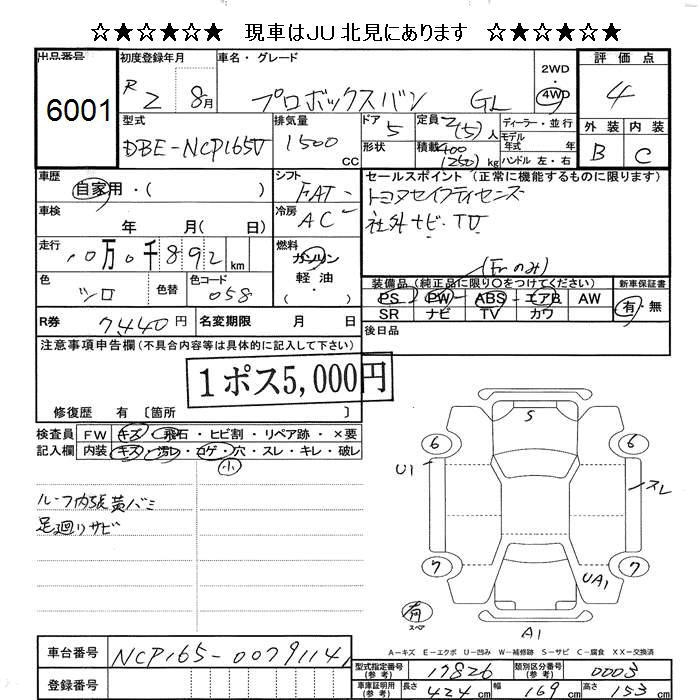 ☆★☆★☆★☆ 現車はJU北見にあります ☆★☆★☆★☆
出品番号 初度登録年月 車名・グレード 評価点
6001 R2 8月 プロボックスバン GL 2WD 4WD 4
型式 排気量 ドア 定員 ディーラー・並行 外装 内装
DBE-NCP165V 1500cc 5 2(5)人 モデル年式 年式 B C
形状 積載 400(250)kg ハンドル 左・右
車歴 シフト セールスポイント(正常に機能するものに限ります)
自家用・( ) FAT トヨタセイフティセンス
車検 冷房 社外ナビ・TV
年 月( 日) AC
走行 燃料 (Frのみ)
0万0千892km ガソリン 装備品(純正品に限り○をつけてください) 新車保証書
色 色替 色コード 軽油 PS PW ABS エアB AW 有・無
シロ 058 ・( ) SR ナビ TV カワ
R券 7440円 名変期限 月 日 後日品
注意事項申告欄(不具合内容等は具体的に記入して下さい)
1ポス5,000円
修復歴 有〔箇所 〕
検査員 FW キズ・飛石・ヒビ割・リペア跡・×要
記入欄 内装 キズ・汚レ・コゲ・穴・スレ・キレ・破レ
小
ルーフ内張黄バミ
足廻りサビ
S
6 6
U1 スレ
7 7
UA1
有
スペア
A1
A-キズ E-エクボ U-凹み W-補修跡 S-サビ C-腐食 XX-交換済
車台番号 NCP165-0079114
登録番号
型式指定番号(参考) 17826 類別区分番号(参考) 0003
車庫証明用(参考) 長さ 424cm 幅 169cm 高さ 153cm